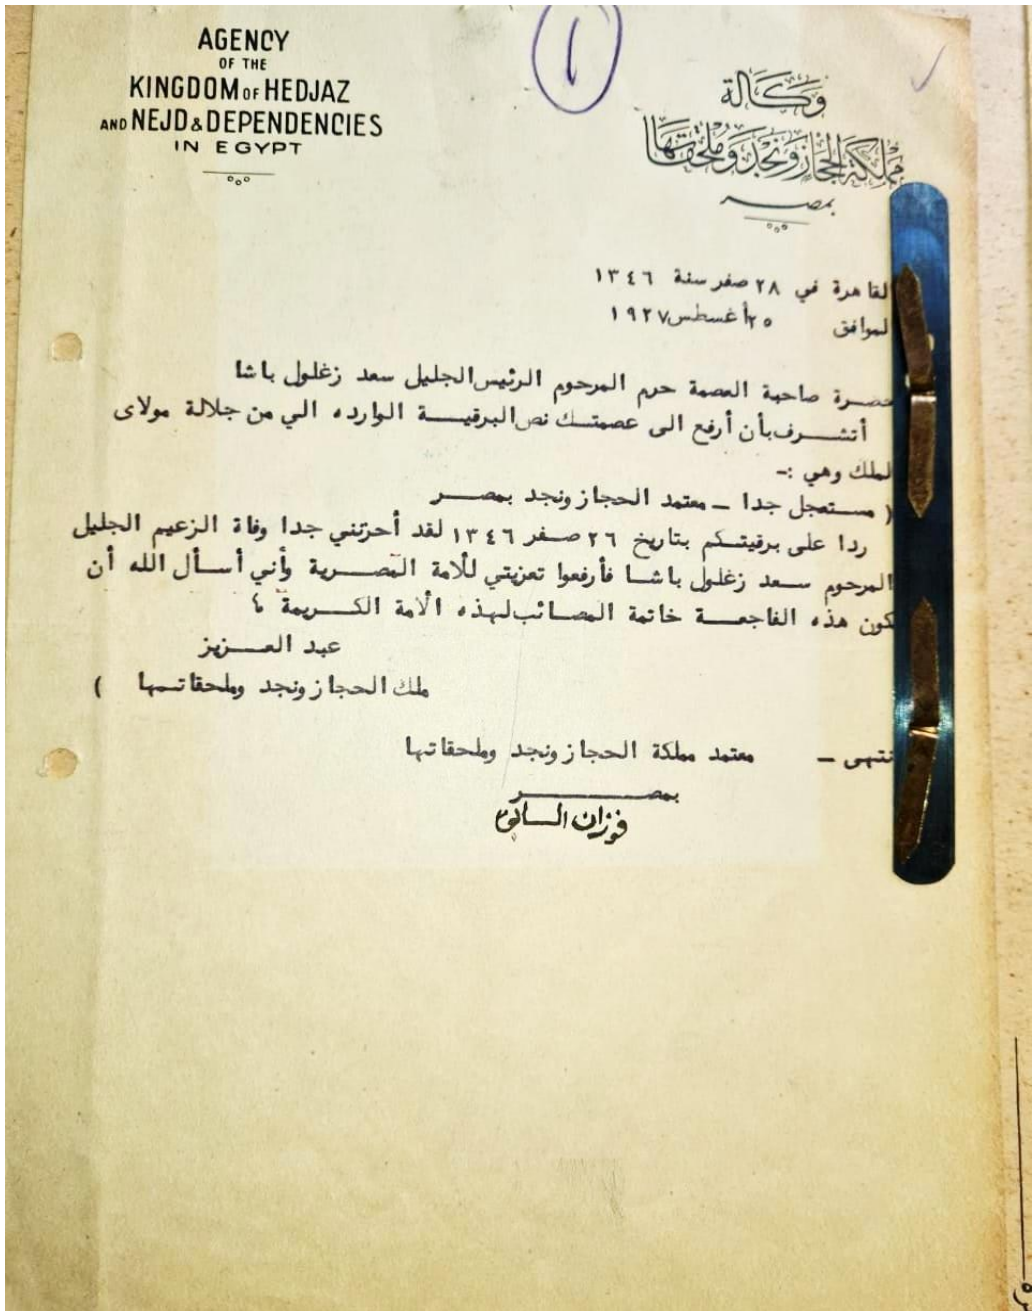 AGENCY
OF THE
KINGDOM OF HEDJAZ
AND NEJD & DEPENDENCIES
IN EGYPT
١
وكالة
مملكة الحجاز ونجد وملحقاتها
بمصر
لقاهرة في ٢٨ صفر سنة ١٣٤٦
لموافق ٢٥ أغسطس ١٩٢٧
حضرة صاحبة العصمة حرم المرحوم الرئيس الجليل سعد زغلول باشا
أتشرف بأن أرفع الى عصمتك نص البرقية الوارده الي من جلالة مولاى
لملك وهي :-
( مستعجل جدا - معتمد الحجاز ونجد بمصر
ردا على برقيتكم بتاريخ ٢٦ صفر ١٣٤٦ لقد أحزنتني جدا وفاة الزعيم الجليل
المرحوم سعد زغلول باشا فأرفعوا تعزيتي للأمة المصرية وأني أسأل الله أن
كون هذه الفاجعة خاتمة المصائب لهذه الأمة الكريمة
عبد العزيز
ملك الحجاز ونجد وملحقاتها )
نتهى - معتمد مملكة الحجاز ونجد وملحقاتها
بمصر
فوزان السابق